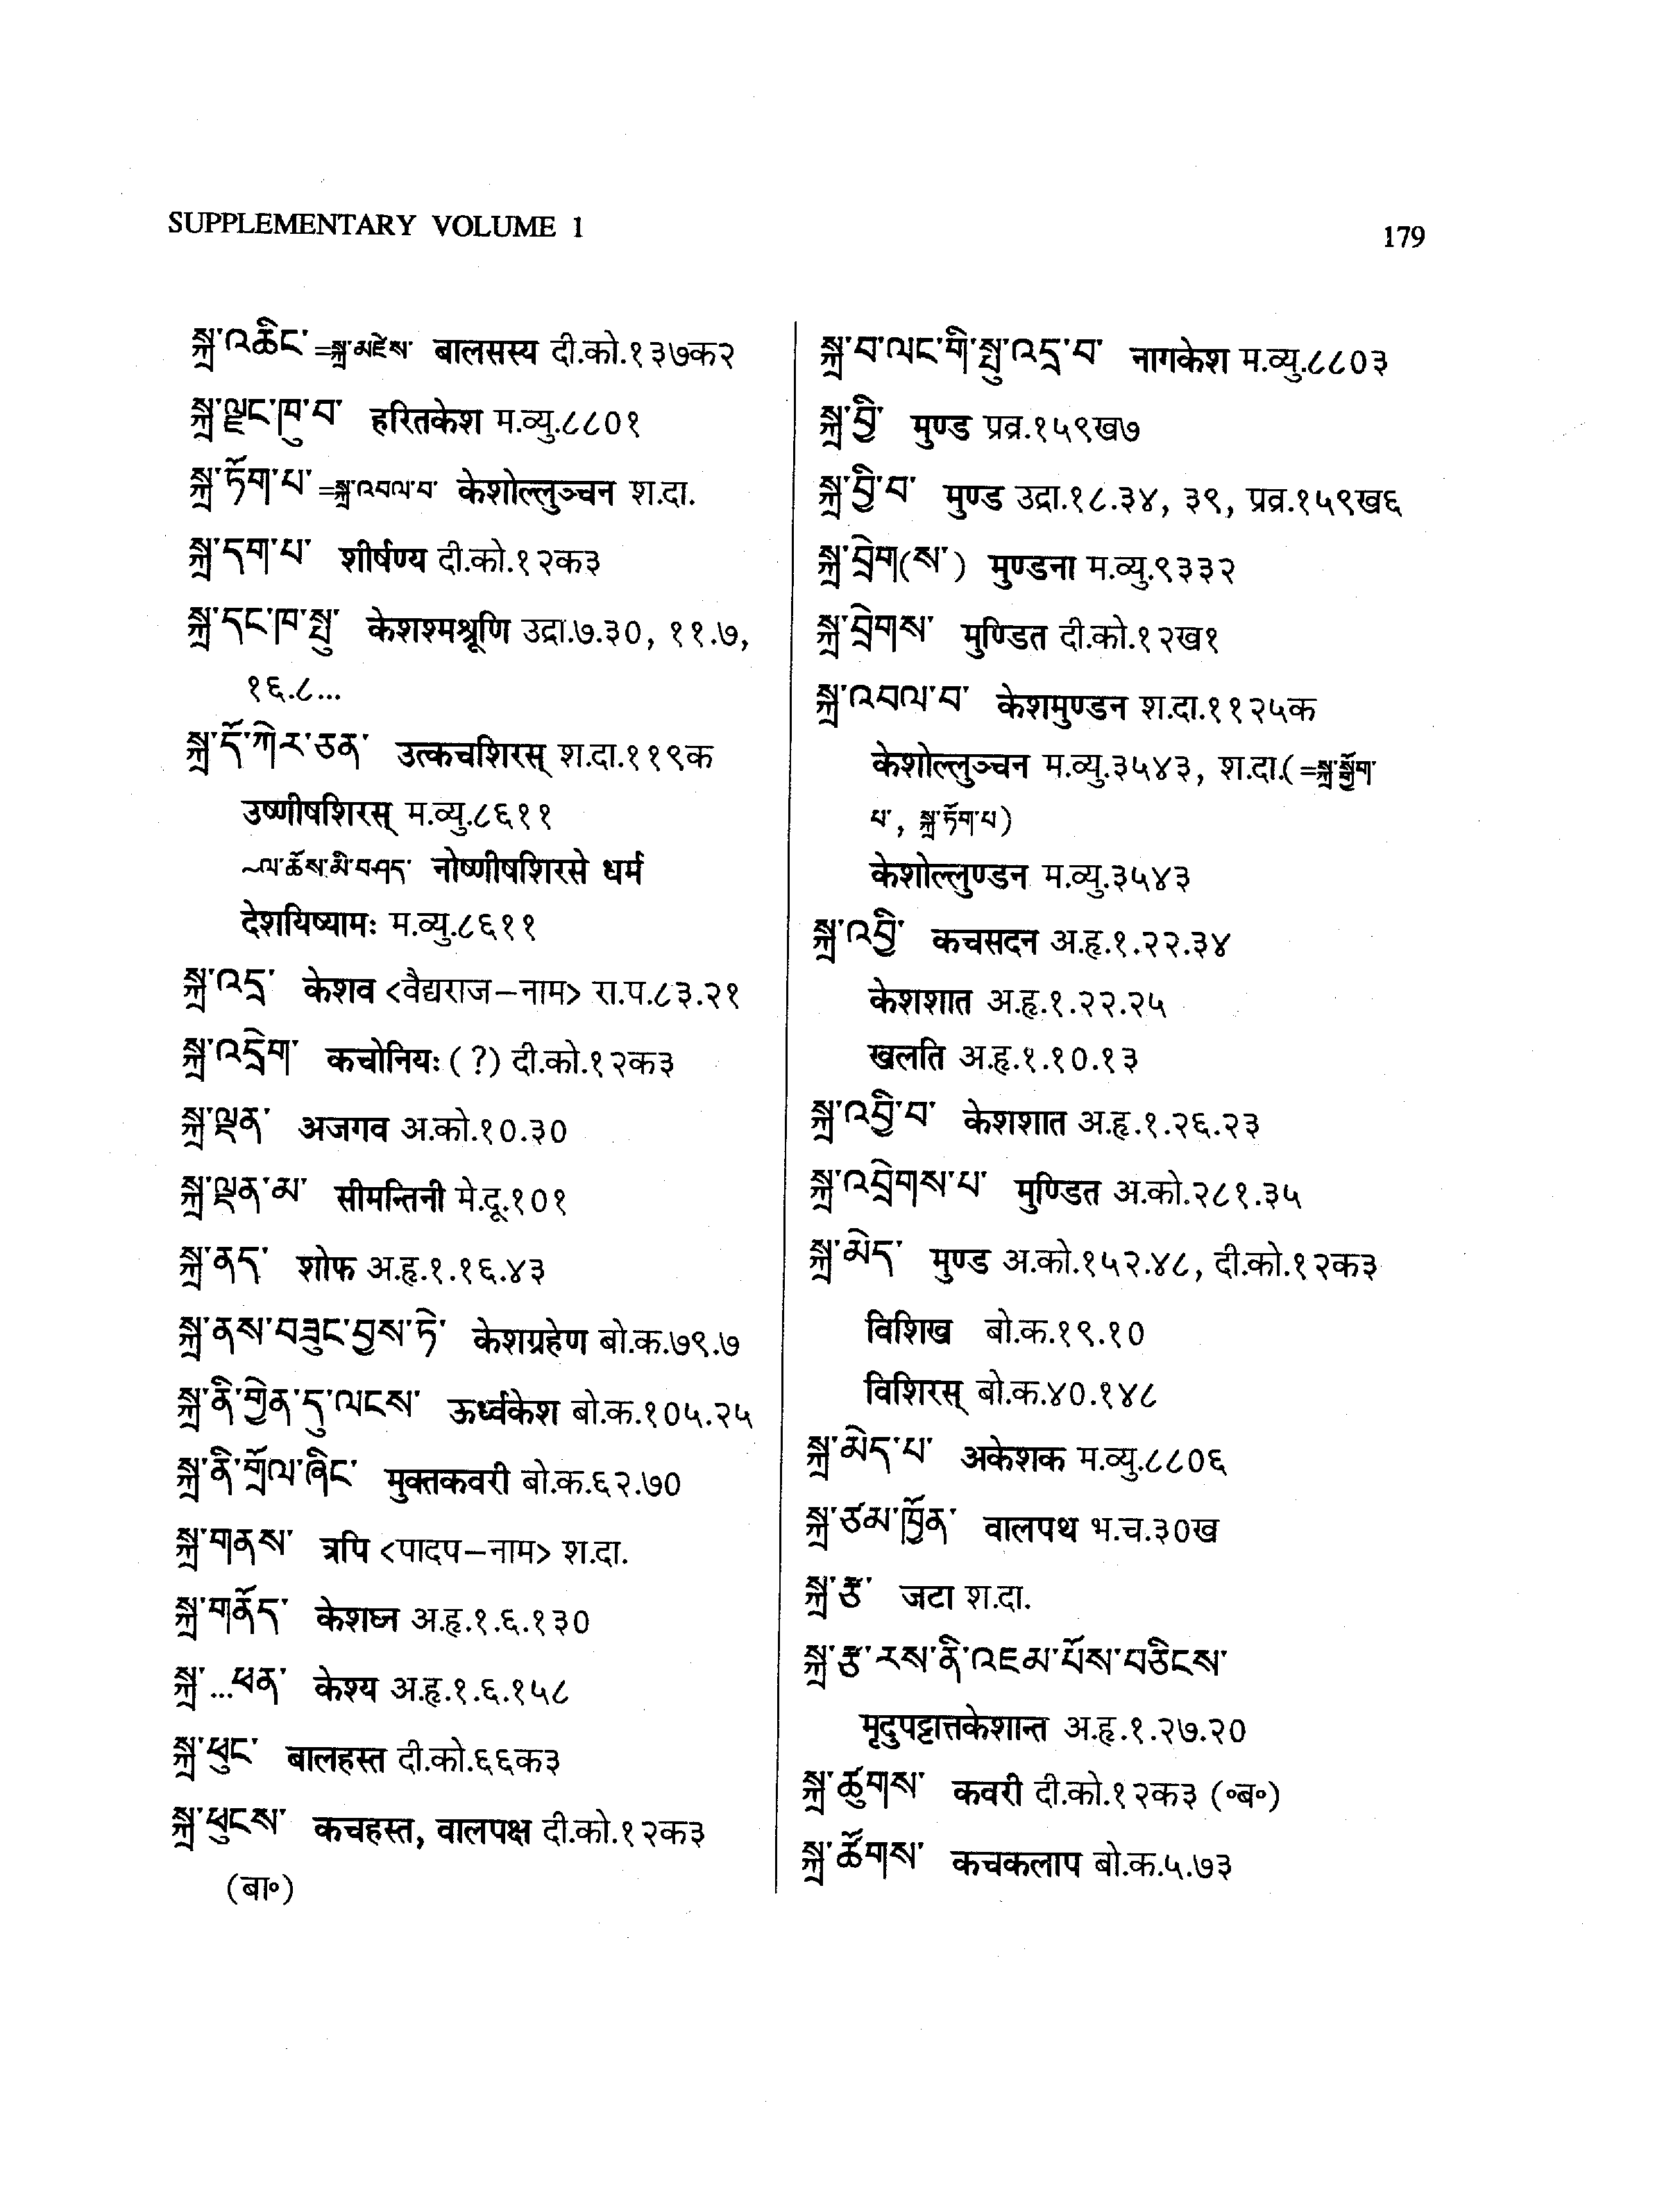 SUPPLEMENTARY VOLUME 1
179
སྐྲ་འཆིང་ =སྐྲ་མཛེས་ बालसस्य दी.को.१३७क२
སྐྲ་ལྗང་ཁུ་བ་ हरितकेश म.व्यु.८८०१
སྐྲ་ཏོག་པ་ =སྐྲ་འབལ་བ་ केशोल्लुञ्चन श.दा.
སྐྲ་དག་པ་ शीर्षण्य दी.को.१२क३
སྐྲ་དང་ཁ་སྤུ་ केशश्मश्रूणि उद्रा.७.३०, ११.७,
१६.८...
སྐྲ་དོ་ཀེར་ཅན་ उत्कचशिरस् श.दा.११९क
उष्णीषशिरस् म.व्यु.८६११
~ལ་ཆོས་མི་བཤད་ नोष्णीषशिरसे धर्म
देशयिष्यामः म.व्यु.८६११
སྐྲ་འདྲ་ केशव <वैद्यराज–नाम> रा.प.८३.२१
སྐྲ་འདྲེག་ कचोनियः (?) दी.को.१२क३
སྐྲ་ལྡན་ अजगव अ.को.१०.३०
སྐྲ་ལྡན་མ་ सीमन्तिनी मे.दू.१०१
སྐྲ་ནད་ शोफ अ.हृ.१.१६.४३
སྐྲ་ནས་བཟུང་བྱས་ཏེ་ केशग्रहेण बो.क.७९.७
སྐྲ་ནི་གྱེན་དུ་ལངས་ ऊर्ध्वकेश बो.क.१०५.२५
སྐྲ་ནི་གྲོལ་ཞིང་ मुक्तकवरी बो.क.६२.७०
སྐྲ་གནས་ त्रपि <पादप–नाम> श.दा.
སྐྲ་གནོད་ केशघ्न अ.हृ.१.६.१३०
སྐྲ་...ཕན་ केश्य अ.हृ.१.६.१५८
སྐྲ་ཕུང་ बालहस्त दी.को.६६क३
སྐྲ་ཕུངས་ कचहस्त, वालपक्ष दी.को.१२क३
(बा॰)
སྐྲ་བ་ལང་གི་སྤུ་འདྲ་བ་ नागकेश म.व्यु.८८०३
སྐྲ་བྱི་ मुण्ड प्रव्र.१५९ख७
སྐྲ་བྱི་བ་ मुण्ड उद्रा.१८.३४, ३९, प्रव्र.१५९ख६
སྐྲ་བྲེག(ས་) मुण्डना म.व्यु.९३३२
སྐྲ་བྲེགས་ मुण्डित दी.को.१२ख१
སྐྲ་འབལ་བ་ केशमुण्डन श.दा.११२५क
केशोल्लुञ्चन म.व्यु.३५४३, श.दा.(=སྐྲ་སྒྱོག་
པ་, སྐྲ་ཏོག་པ)
केशोल्लुण्डन म.व्यु.३५४३
སྐྲ་འབྱི་ कचसदन अ.हृ.१.२२.३४
केशशात अ.हृ.१.२२.२५
खलति अ.हृ.१.१०.१३
སྐྲ་འབྱི་བ་ केशशात अ.हृ.१.२६.२३
སྐྲ་འབྲེགས་པ་ मुण्डित अ.को.२८१.३५
སྐྲ་མེད་ मुण्ड अ.को.१५२.४८, दी.को.१२क३
विशिख बो.क.१९.१०
विशिरस् बो.क.४०.१४८
སྐྲ་མེད་པ་ अकेशक म.व्यु.८८०६
སྐྲ་ཙམ་ཁྱོན་ वालपथ भ.च.३०ख
སྐྲ་རྩ་ जटा श.दा.
སྐྲ་རྩ་རས་ནི་འཇམ་པོས་བཅིངས་
मृदुपट्टात्तकेशान्त अ.हृ.१.२७.२०
སྐྲ་ཚུགས་ कवरी दी.को.१२क३ (॰ब॰)
སྐྲ་ཚོགས་ कचकलाप बो.क.५.७३